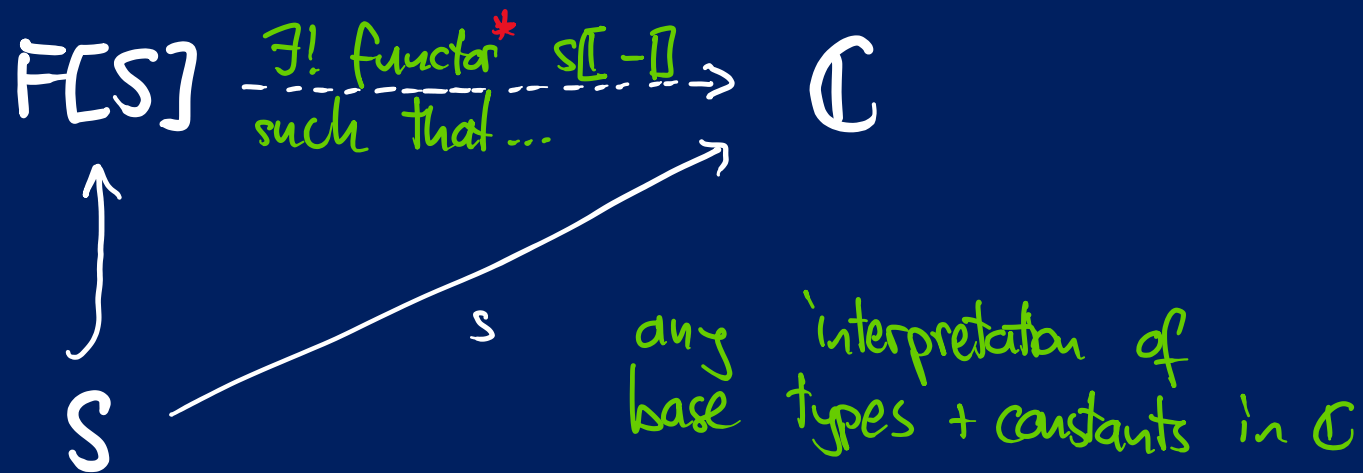 F[S] ∃! functor* s⟦-⟧ ℂ
such that...
s
any interpretation of
S base types + constants in ℂ